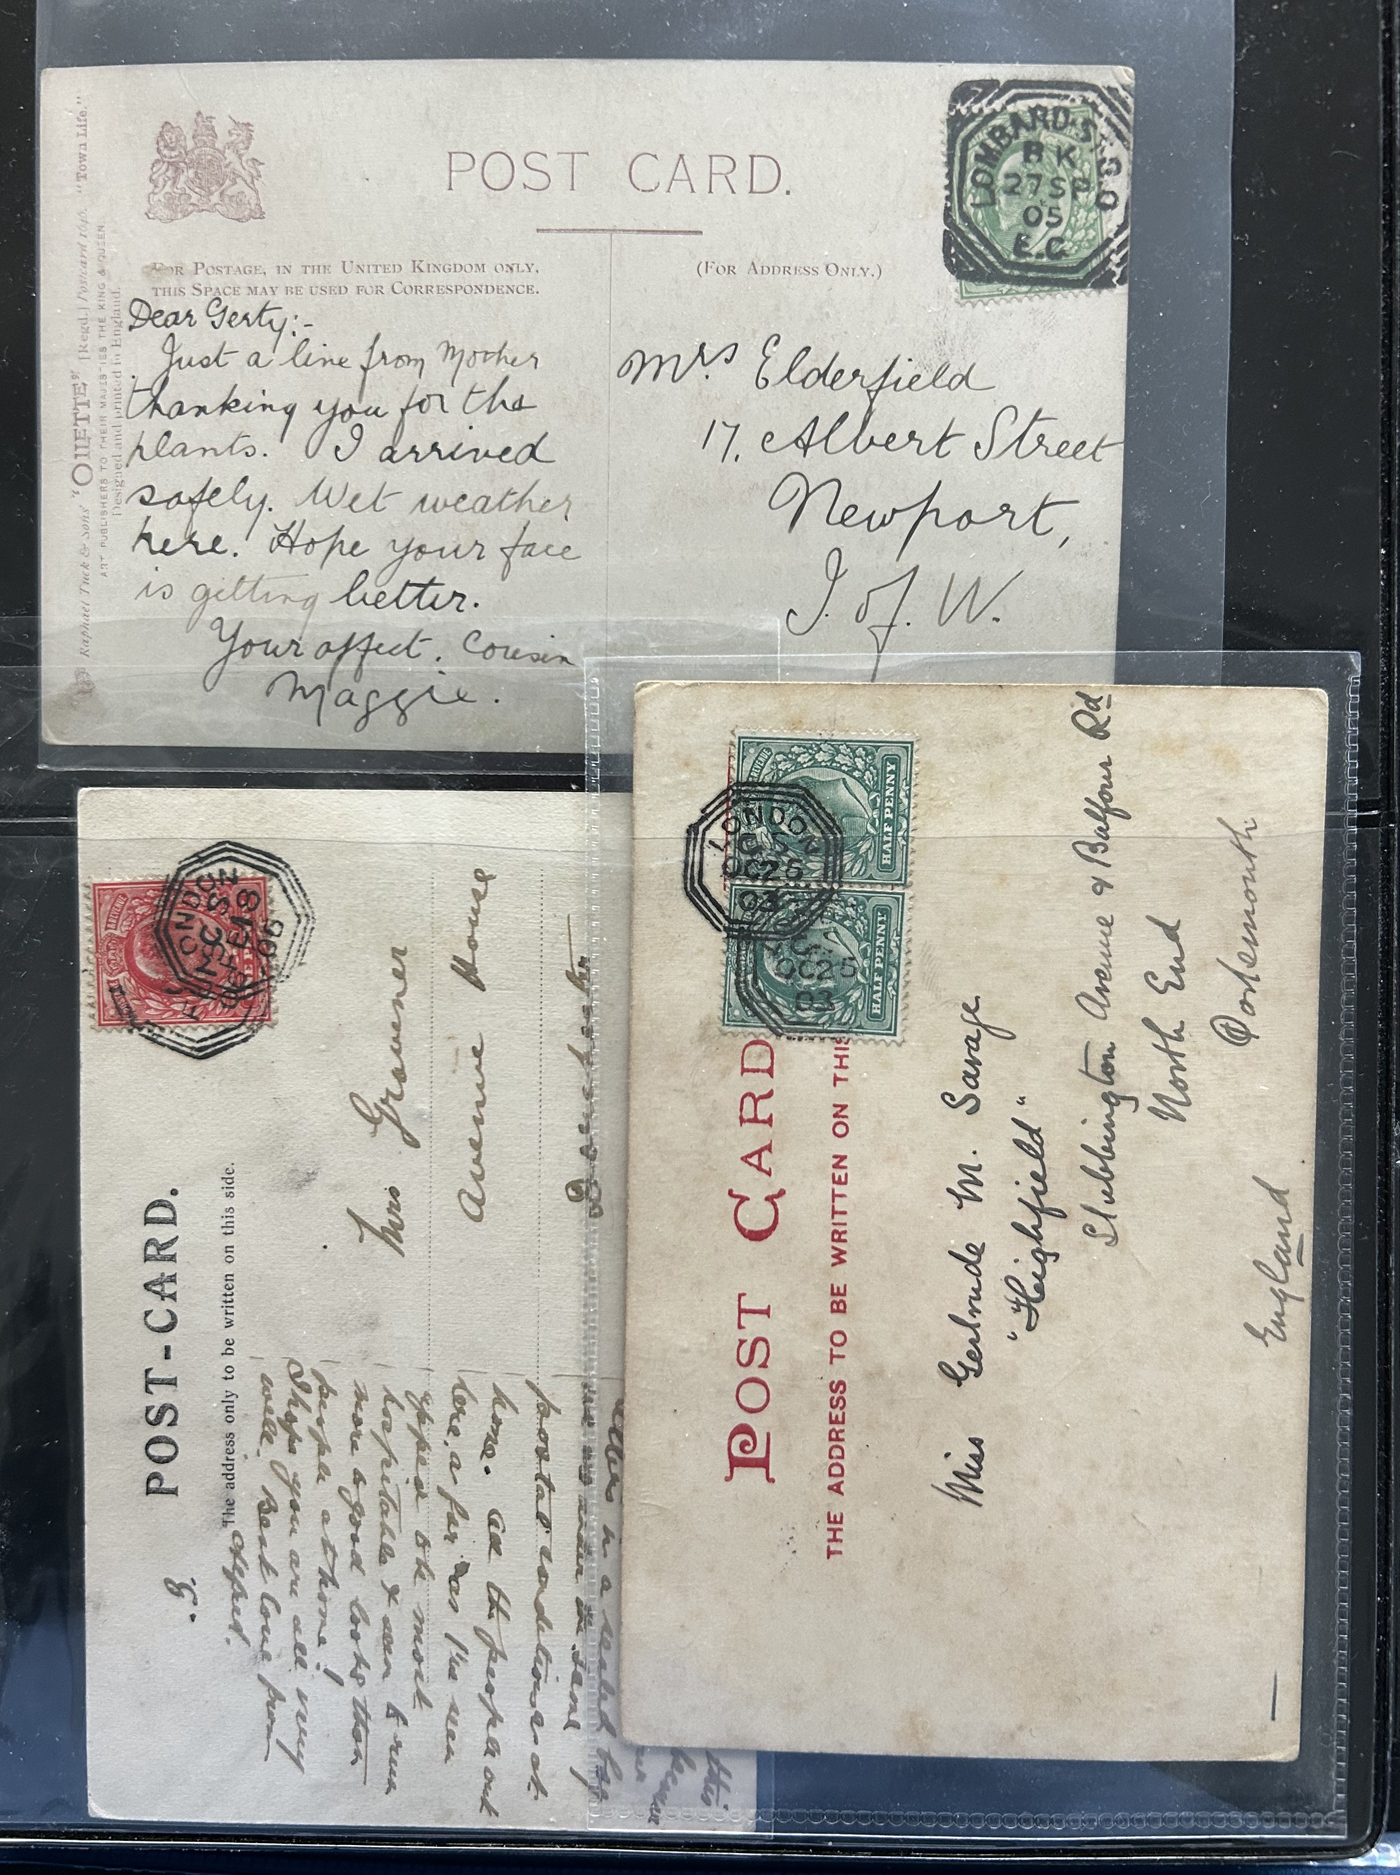 POST CARD.
FOR POSTAGE, IN THE UNITED KINGDOM ONLY,
THIS SPACE MAY BE USED FOR CORRESPONDENCE.
(FOR ADDRESS ONLY.)
LOMBARD ST. B.O
27 SP
05
E.C
Raphael Tuck & Sons' "OILETTE" [Regd.] Postcard "Town Life."
ART PUBLISHERS TO THEIR MAJESTIES THE KING & QUEEN.
Designed and printed in England.
Dear Gerty:-
Just a line from Mother
thanking you for the
plants. I arrived
safely. Wet weather
here. Hope your face
is getting better.
Your affect. Cousin
Maggie.
Mrs Elderfield
17, Albert Street
Newport,
I. of. W.
POST-CARD.
The address only to be written on this side.
LONDON
FE 18
06
Mrs Grosvenor
Avenue House
letters in a sealed
postal conditions at
home. All the people out
here, as far as I've seen
appear to be most
hospitable &
more good looks than
people at home!
I hope you are all very
well. Best love from
POST CARD
THE ADDRESS TO BE WRITTEN ON THIS
HALF PENNY
HALF PENNY
LONDON
OC 25
03
OC 25
03
Miss Gertrude M. Savage
"Heighfield"
Stubbington Avenue & Balfour Rd
North End
Portsmouth
England